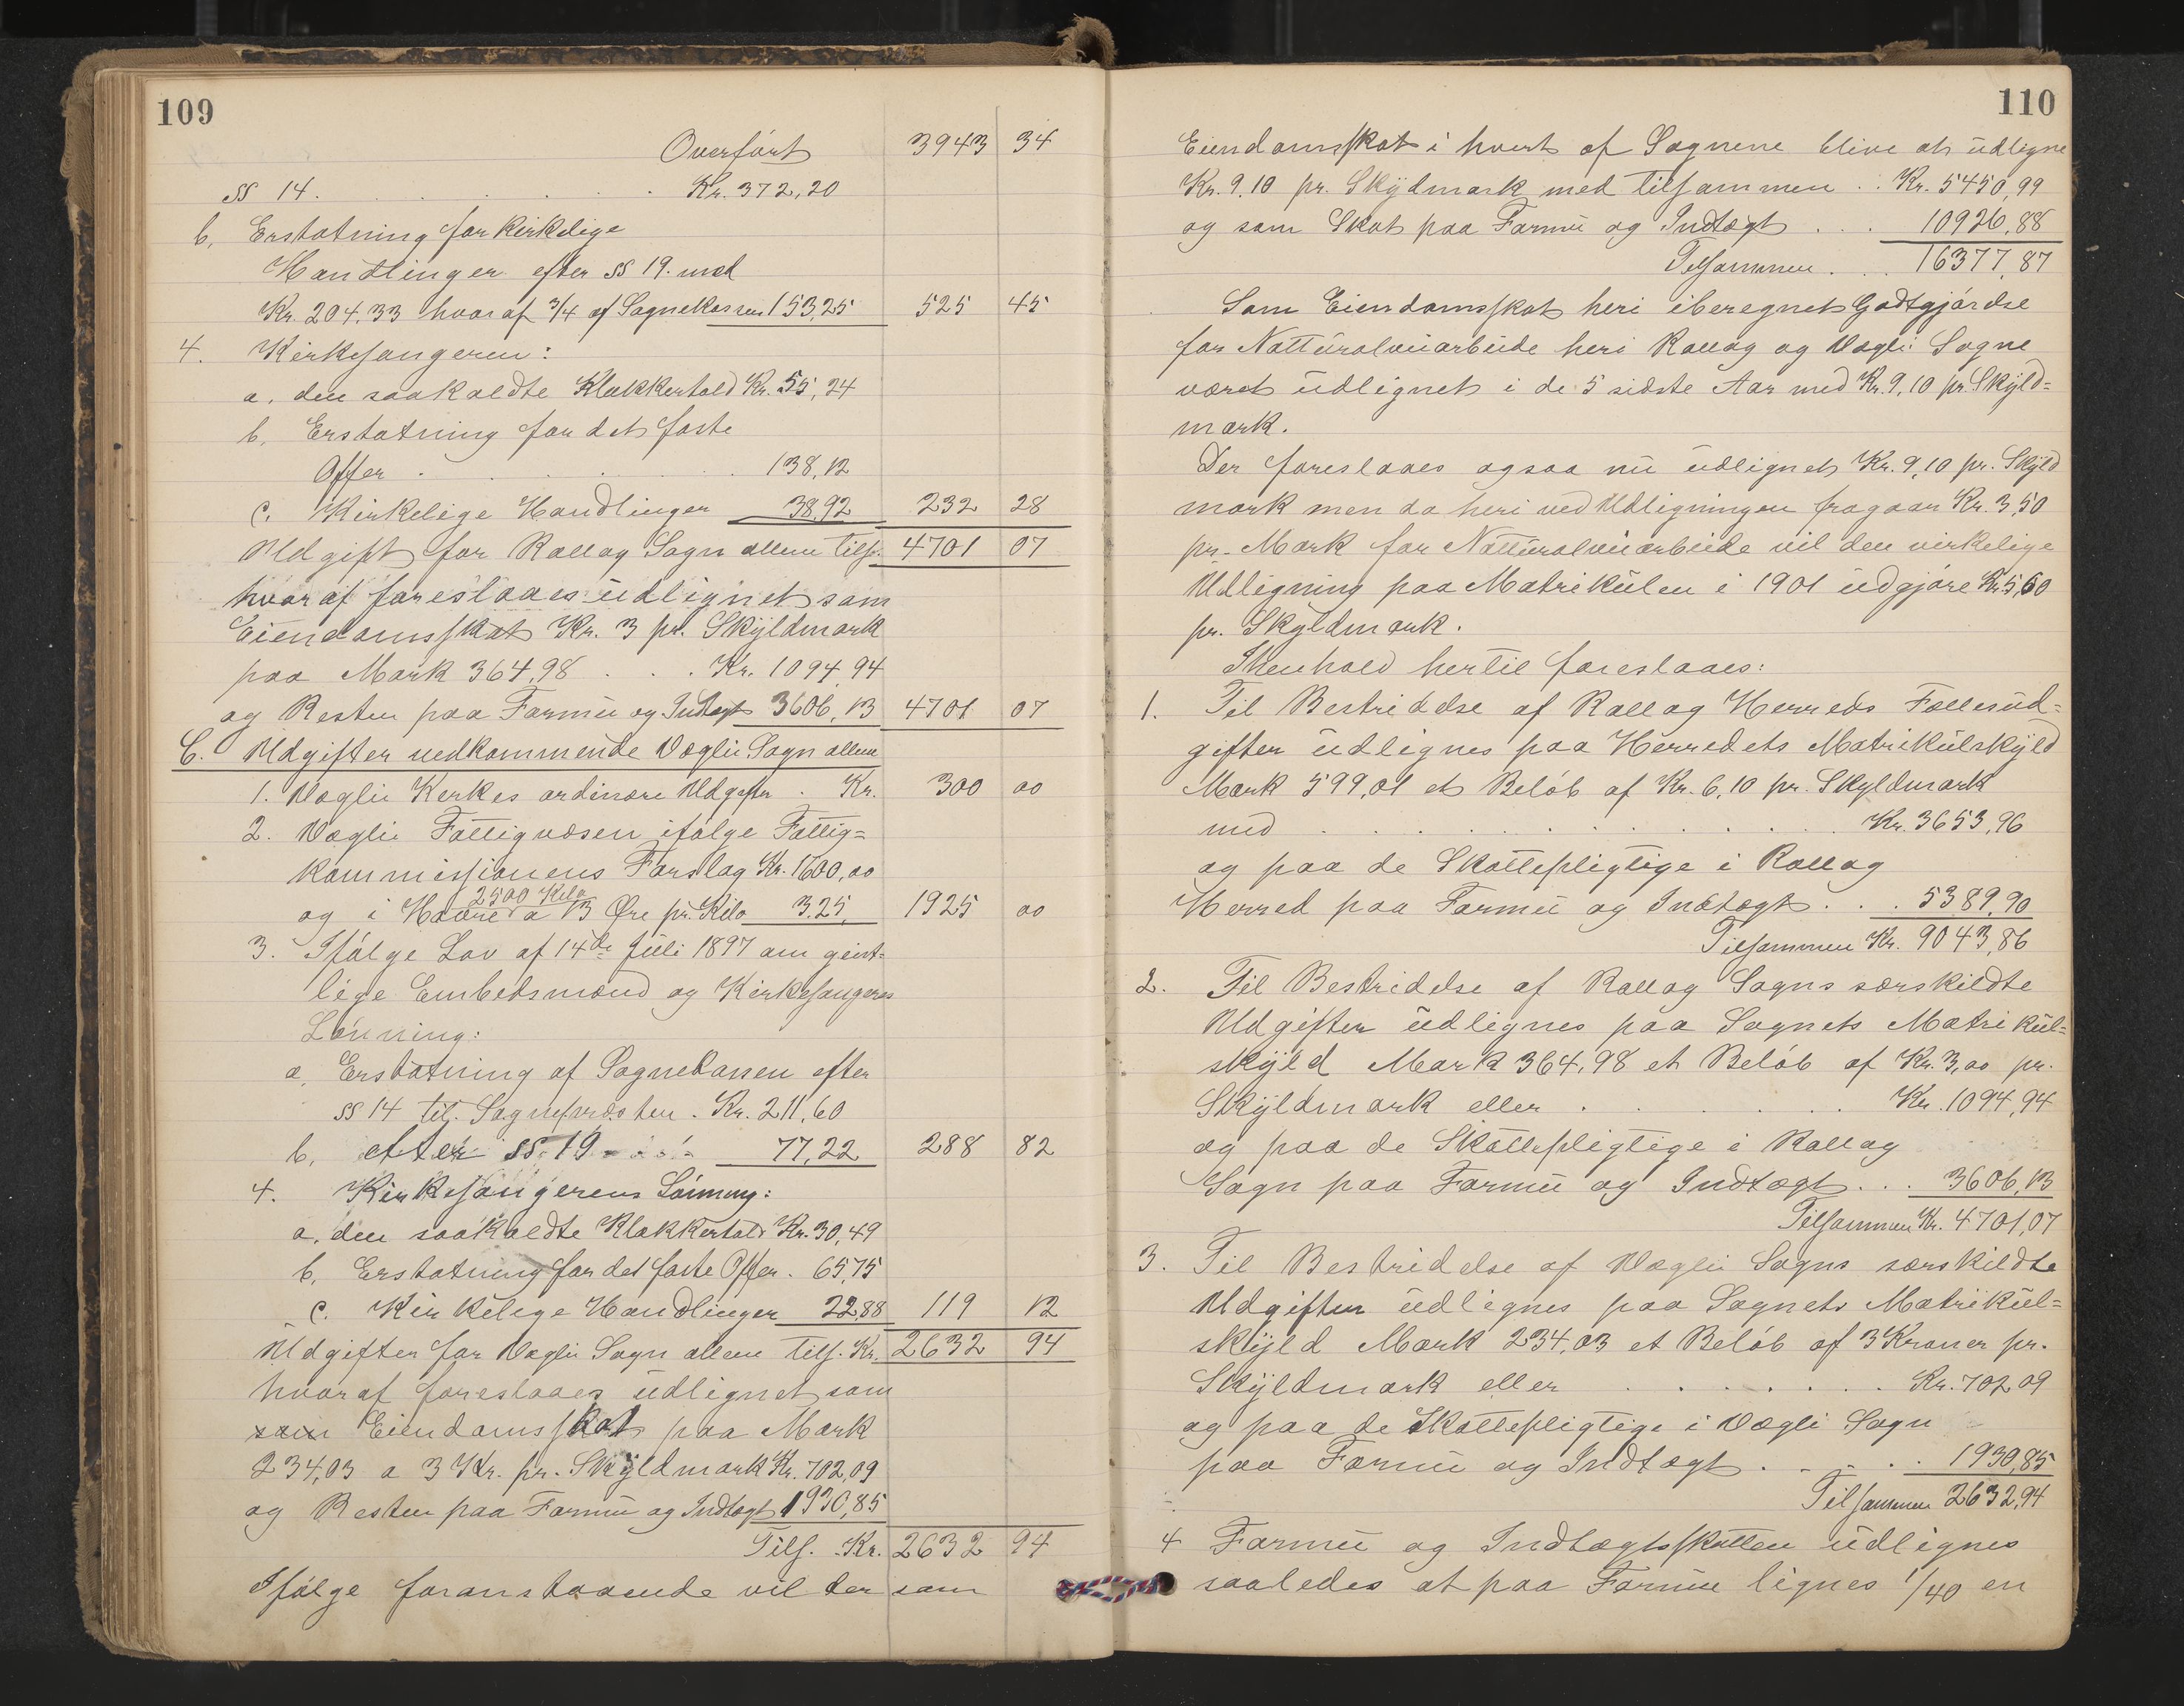 109
Overført 3943 34
§§ 14. . . . . . Kr. 372,20
b. Erstatning for kirkelige
Handlinger efter §§ 19. med
Kr. 204.33 hvoraf 3/4 af Sognekassen 153,25 525 45
4. Kirkesangeren:
a. den saakaldte Klokkertold Kr. 55,24
b. Erstatning for det faste
Offer . . . . 138,12
c. Kirkelige Handlinger 38,92 232 28
Udgift for Rollag Sogn alene tils. 4701 07
hvoraf foreslaaes udlignet som
Eiendomsskat Kr. 3 pr. Skyldmark
paa Mark 364,98 . . . Kr. 1094,94
og Resten paa Formue og Indtægt 3606,13 4701 07
C. Udgifter vedkommende Vægli Sogn alene
1. Vægli Kirkes ordinære Udgifter . Kr. 300 00
2. Vægli Fattigvæsen ifølge Fattig=
kommissionens Forslag Kr. 1600,00
2500 Kilo
og i Havre a 13 Øre pr. Kilo 325, 1925 00
3. Ifølge Lov af 14de Juli 1897 om geist=
lige Embedsmænd og Kirkesangeres
Lønning:
a. Erstatning af Sognekassen efter
§§ 14 til Sognepræsten . Kr. 211,60
b. efter §§. 19 - . . . - 77,22 288 82
4. Kirkesangerens Lønning:
a. den saakaldte Klokkertold Kr. 30,49
b. Erstatning for det faste Offer . 65,75
c. Kirkelige Handlinger 22,88 119 12
Udgifter for Vægli Sogn alene tils. Kr. 2632 94
hvoraf foreslaaes udlignet som
som Eiendomsskat paa Mark
234,03 a 3 Kr. pr. Skyldmark Kr. 702,09
og Resten paa Formue og Indtægt 1930,85
Tils. Kr. 2632 94
Ifølge foranstaaende vil der som
110
Eiendomsskat i hvert af Sognene blive at udligne
Kr. 9.10 pr. Skyldmark med tilsammen . . Kr. 5450,99
og som Skat paa Formue og Indtægt . . . 10926,88
Tilsammen . . . 16377,87
Som Eiendomsskat heri iberegnet Godtgjørelse
for Naturalveiarbeide heri Rollag og Vægli Sogne
været udlignet i de 5 sidste Aar med Kr. 9,10 pr. Skyld=
mark.
Der foreslaaes ogsaa nu udlignet Kr. 9,10 pr. Skyld
mark men da heri ved Udligningen fragaar Kr. 3,50
pr. Mark for Naturalveiarbeide vil den virkelige
Udligning paa Matrikulen i 1901 udgjøre Kr. 5,60
pr. Skyldmark.
I Henhold hertil foreslaaes:
1. Til Bestridelse af Rollag Herreds Fællesud=
gifter udlignes paa Herredets Matrikulskyld
Mark 599,01 et Beløb af Kr. 6,10 pr. Skyldmark
med . . . . . . . . Kr. 3653,96
og paa de Skattepligtige i Rollag
Herred paa Formue og Indtægt . . . 5389,90
Tilsammen Kr. 9043,86
2. Til Bestridelse af Rollag Sogns særskildte
Udgifter udlignes paa Sognets Matrikul=
skyld Mark 364,98 et Beløb af Kr. 3,00 pr.
Skyldmark eller . . . . . Kr. 1094,94
og paa de Skattepligtige i Rollag
Sogn paa Formue og Indtægt . . . 3606,13
Tilsammen Kr. 4701,07
3. Til Bestridelse af Vægli Sogns særskildte
Udgifter udlignes paa Sognets Matrikul=
skyld Mark 234,03 et Beløb af 3 Kroner pr.
Skyldmark eller . . . . . . Kr. 702,09
og paa de Skattepligtige i Vægli Sogn
paa Formue og Indtægt . . . . . 1930,85
Tilsammen 2632,94
4 Formue og Indtægtsskatten udlignes
saaledes at paa Formue lignes 1/40 en